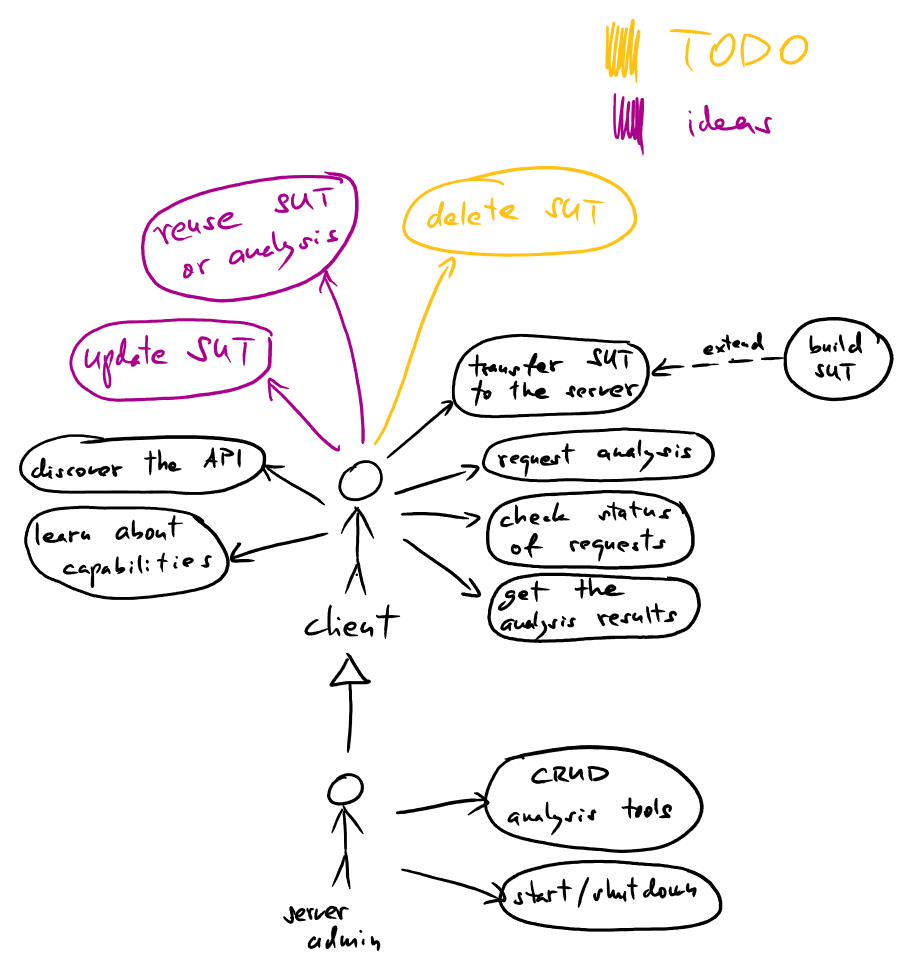 TODO
ideas
reuse SUT
or analysis
delete SUT
update SUT
transfer SUT
to the server
extend
build
SUT
discover the API
request analysis
learn about
capabilities
check status
of requests
get the
analysis results
client
CRUD
analysis tools
start/shutdown
server
admin